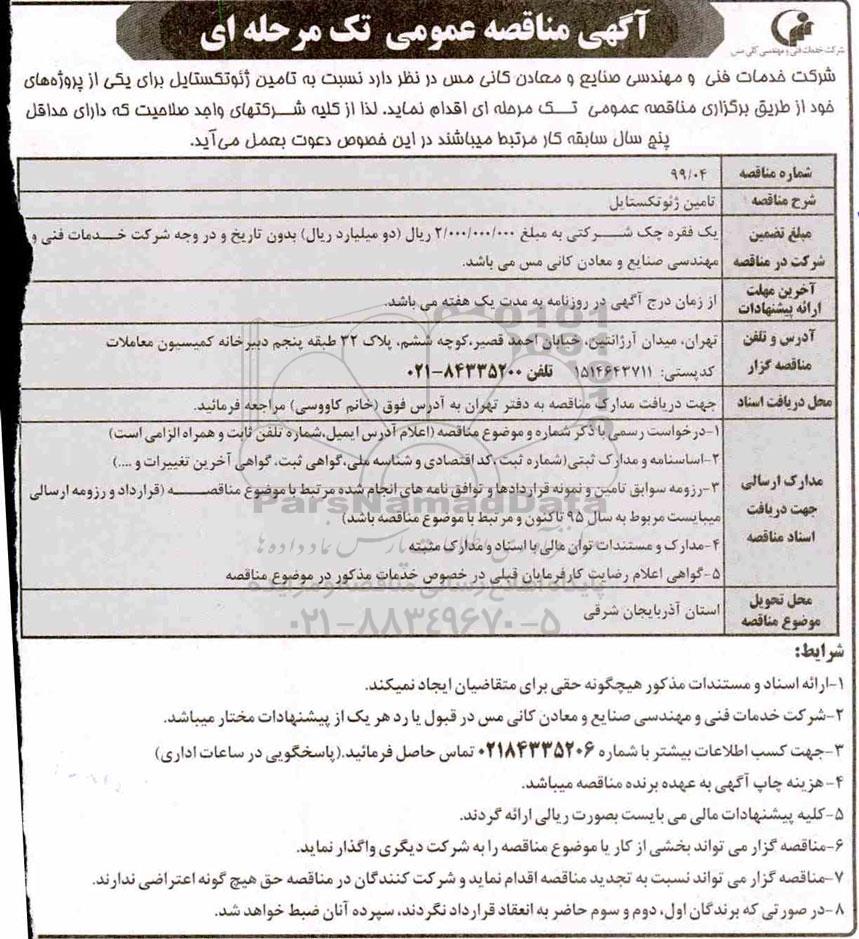 آگهی مناقصه عمومی تک مرحله ای
شرکت خدمات فنی و مهندسی کانی مس
شرکت خدمات فنی و مهندسی صنایع و معادن کانی مس در نظر دارد نسبت به تامین ژئوتکستایل برای یکی از پروژه‌های
خود از طریق برگزاری مناقصه عمومی تک مرحله ای اقدام نماید. لذا از کلیه شرکتهای واجد صلاحیت که دارای حداقل
پنج سال سابقه کار مرتبط میباشند در این خصوص دعوت بعمل می‌آید.
شماره مناقصه
۹۹/۰۴
شرح مناقصه
تامین ژئوتکستایل
مبلغ تضمین
شرکت در مناقصه
یک فقره چک شرکتی به مبلغ ۲/۰۰۰/۰۰۰/۰۰۰ ریال (دو میلیارد ریال) بدون تاریخ و در وجه شرکت خدمات فنی و
مهندسی صنایع و معادن کانی مس می باشد.
آخرین مهلت
ارائه پیشنهادات
از زمان درج آگهی در روزنامه به مدت یک هفته می باشد.
آدرس و تلفن
مناقصه گزار
تهران، میدان آرژانتین، خیابان احمد قصیر،کوچه ششم، پلاک ۳۲ طبقه پنجم دبیرخانه کمیسیون معاملات
کدپستی: ۱۵۱۴۶۴۳۷۱۱ تلفن ۸۴۳۳۵۲۰۰-۰۲۱
محل دریافت اسناد
جهت دریافت مدارک مناقصه به دفتر تهران به آدرس فوق (خانم کاووسی) مراجعه فرمائید.
مدارک ارسالی
جهت دریافت
اسناد مناقصه
۱-درخواست رسمی با ذکر شماره و موضوع مناقصه (اعلام آدرس ایمیل،شماره تلفن ثابت و همراه الزامی است)
۲-اساسنامه و مدارک ثبتی(شماره ثبت، کد اقتصادی و شناسه ملی،گواهی ثبت، گواهی آخرین تغییرات و ....)
۳-رزومه سوابق تامین و نمونه قراردادها و توافق نامه های انجام شده مرتبط با موضوع مناقصه (قرارداد و رزومه ارسالی
میبایست مربوط به سال ۹۵ تاکنون و مرتبط با موضوع مناقصه باشد)
۴-مدارک و مستندات توان مالی با اسناد و مدارک مثبته
۵-گواهی اعلام رضایت کارفرمایان قبلی در خصوص خدمات مذکور در موضوع مناقصه
محل تحویل
موضوع مناقصه
استان آذربایجان شرقی
ParsNamadData
پایگاه اطلاع رسانی مناقصه و مزایده
۰۲۱-۸۸۳۴۹۶۷۰-۵
شرایط:
۱-ارائه اسناد و مستندات مذکور هیچگونه حقی برای متقاضیان ایجاد نمیکند.
۲-شرکت خدمات فنی و مهندسی صنایع و معادن کانی مس در قبول یا رد هر یک از پیشنهادات مختار میباشد.
۳-جهت کسب اطلاعات بیشتر با شماره ۰۲۱۸۴۳۳۵۲۰۶ تماس حاصل فرمائید.(پاسخگویی در ساعات اداری)
۴-هزینه چاپ آگهی به عهده برنده مناقصه میباشد.
۵-کلیه پیشنهادات مالی می بایست بصورت ریالی ارائه گردند.
۶-مناقصه گزار می تواند بخشی از کار یا موضوع مناقصه را به شرکت دیگری واگذار نماید.
۷-مناقصه گزار می تواند نسبت به تجدید مناقصه اقدام نماید و شرکت کنندگان در مناقصه حق هیچ گونه اعتراضی ندارند.
۸-در صورتی که برندگان اول، دوم و سوم حاضر به انعقاد قرارداد نگردند، سپرده آنان ضبط خواهد شد.